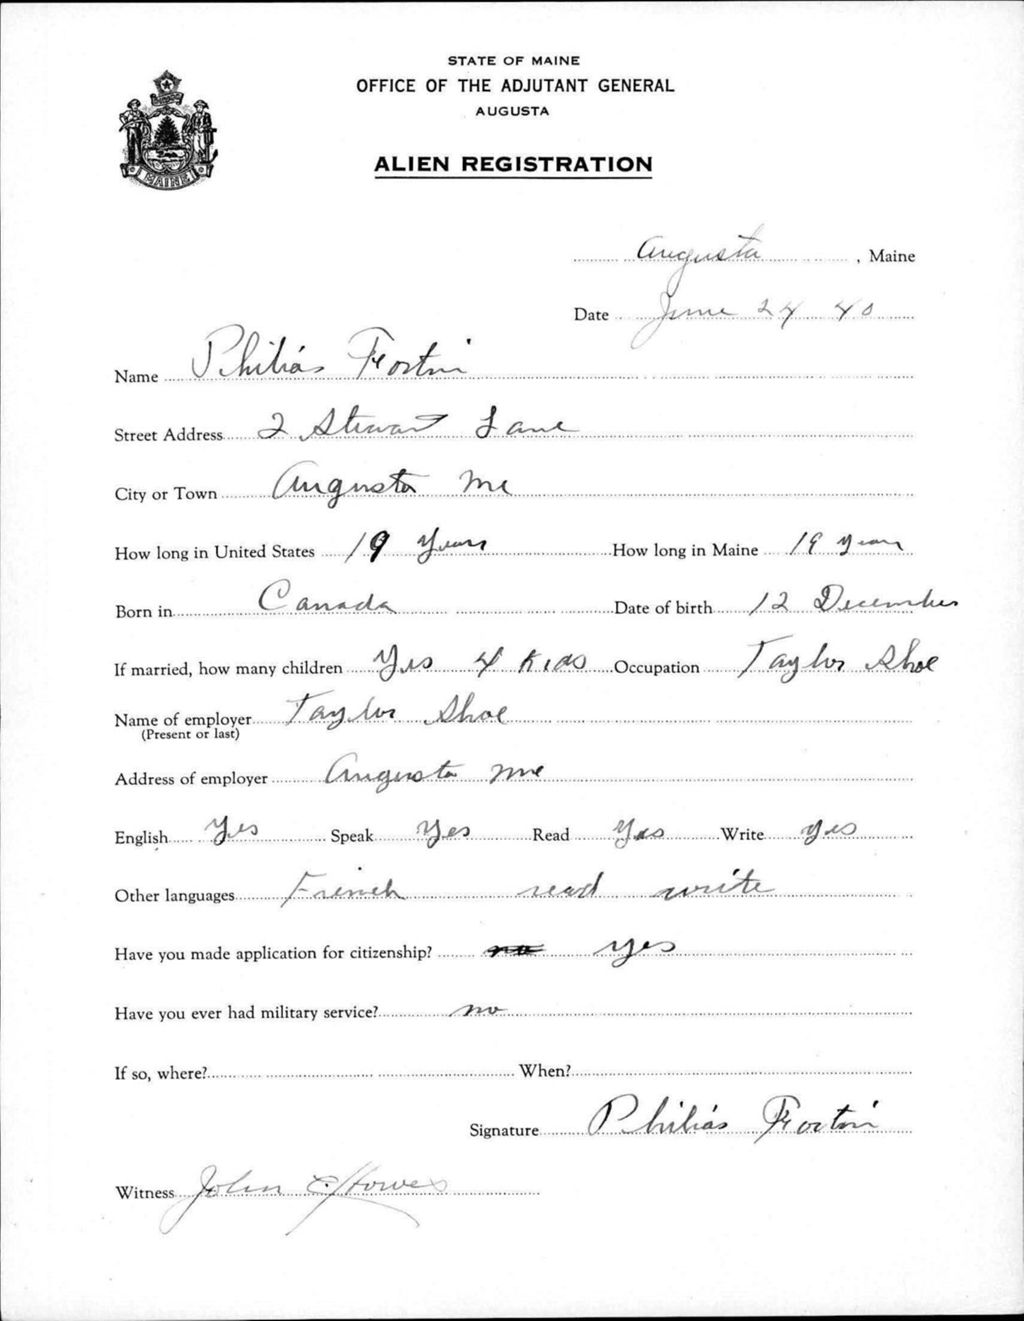 STATE OF MAINE
OFFICE OF THE ADJUTANT GENERAL
AUGUSTA
ALIEN REGISTRATION
MAINE
Augusta, Maine
Date June 24 40
Name Philias Fortin
Street Address 2 Stewart Lane
City or Town Augusta Me
How long in United States 19 years How long in Maine 19 years
Born in Canada Date of birth 12 December
If married, how many children Yes 4 Kids Occupation Taylor Shoe
Name of employer Taylor Shoe
(Present or last)
Address of employer Augusta Me
English Yes Speak Yes Read Yes Write Yes
Other languages French read write
Have you made application for citizenship? no yes
Have you ever had military service? no
If so, where? When?
Signature Philias Fortin
Witness John E Howes